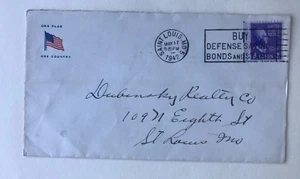 ONE FLAG
ONE COUNTRY
SAINT LOUIS, MO.
MAY
194
BUY
DEFENSE
BONDS AND
Dubinsky Realty Co
109 N Eighth St
St Louis Mo